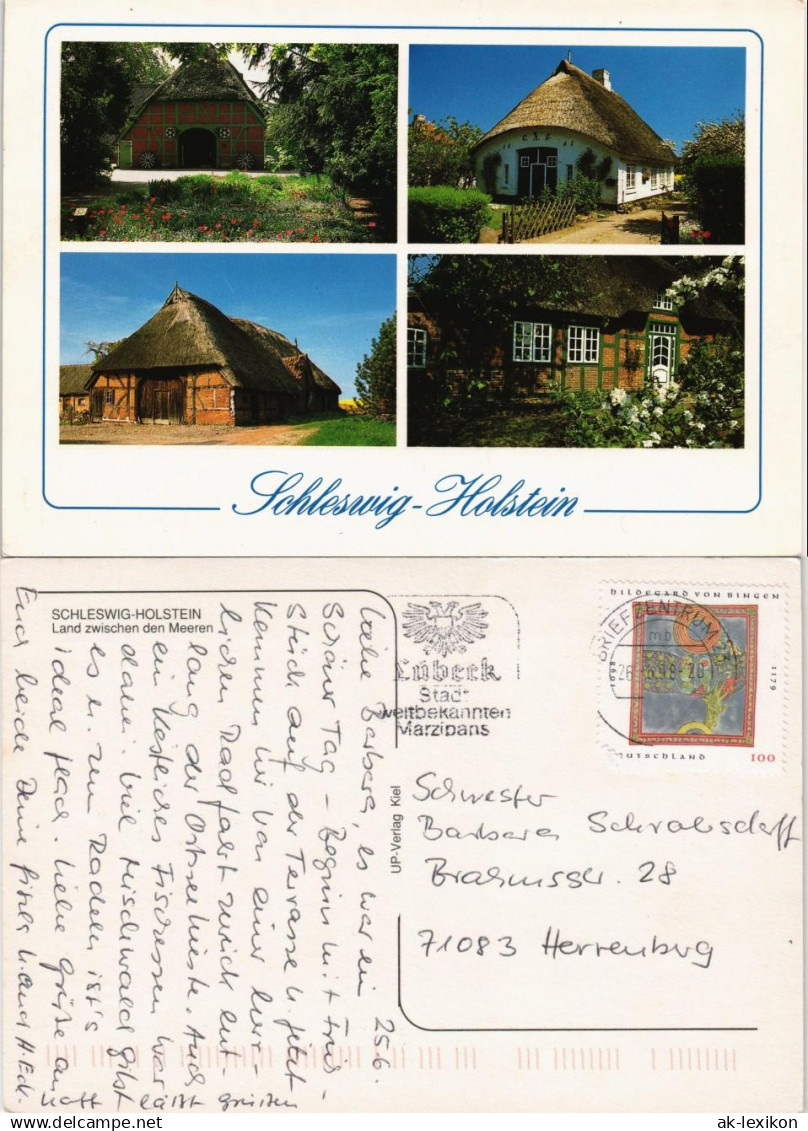 Schleswig-Holstein
SCHLESWIG-HOLSTEIN
Land zwischen den Meeren
25.6.
Liebe Barbara, es war ein
schöner Tag – Beginn mit Früh-
stück auf der Terrasse u. jetzt
kommen wir von einer herr-
lichen Radfahrt zurück ent-
lang der Ostseeküste. Auch
ein köstliches Fischessen war
dabei. Viel Mischwald gibt
es u. zum Radeln ist's
ideal flach. Liebe Grüße an
Euch beide Deine Gisela u. auch H. Eck.
läßt grüßen
Lübeck
Stadt
weltbekannten
Marzipans
BRIEFZENTRUM
mb
HILDEGARD VON BINGEN
1098
1179
DEUTSCHLAND 100
UP-Verlag Kiel
Schwester
Barbara Schrabsdorff
Brahmsstr. 28
71083 Herrenberg
ak-lexikon.com